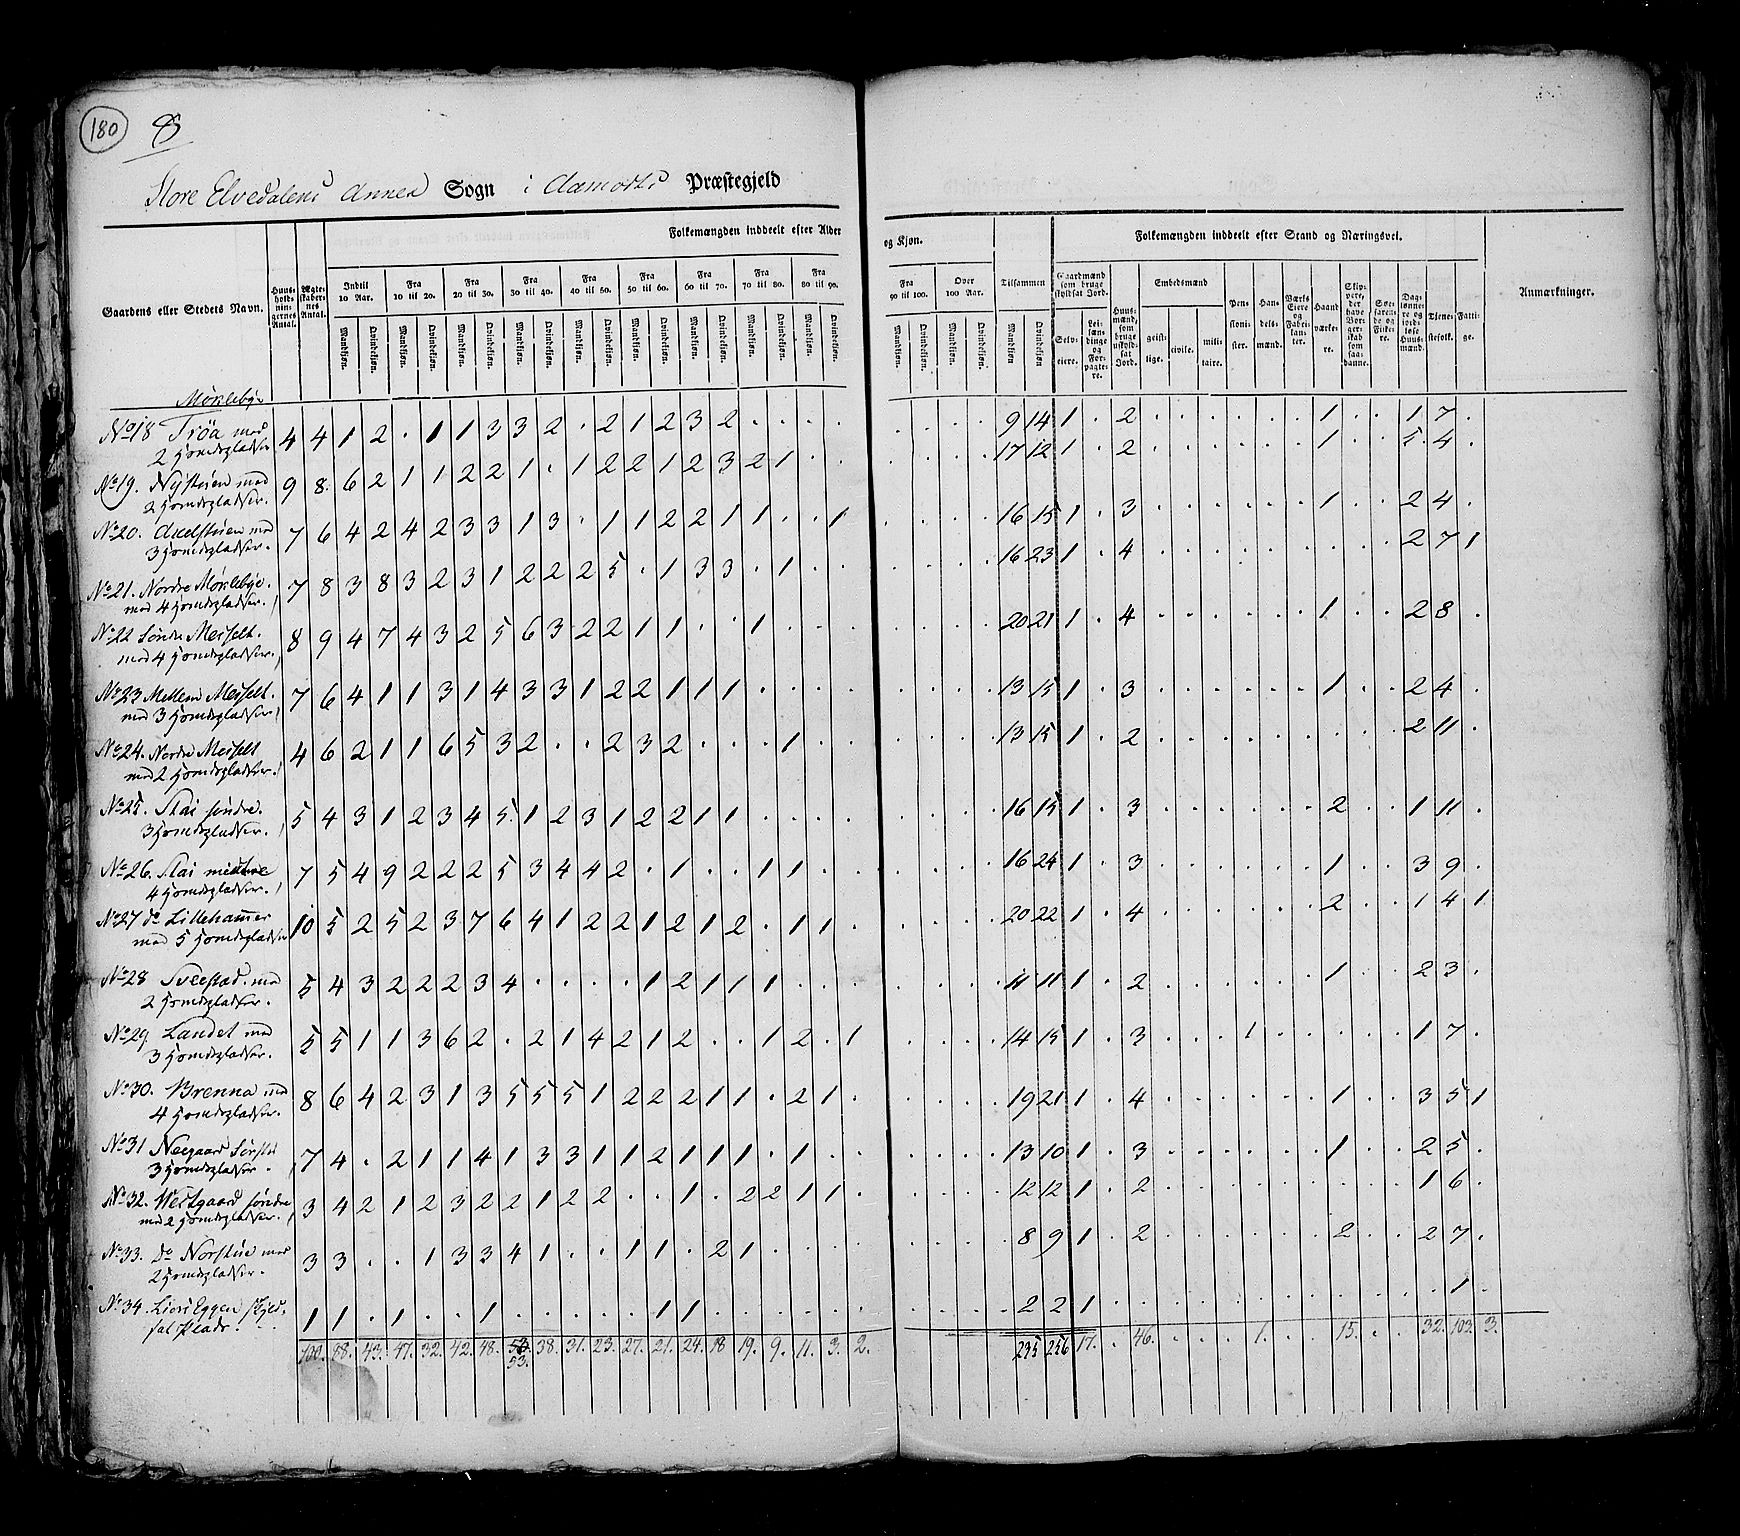 180 8
Store Elvedalens Annex Sogn i Aamodts Præstegjeld
Folkemængden inddeelt efter Alder
og Kjøn.
Folkemængden inddeelt efter Stand og Næringsvei.
Gaardens eller Stedets Navn.
Huus-holdnin-gernes Antal.
Ægte-skaber-nes Antal.
Indtil 10 Aar.
Fra 10 til 20.
Fra 20 til 30.
Fra 30 til 40.
Fra 40 til 50.
Fra 50 til 60.
Fra 60 til 70.
Fra 70 til 80.
Fra 80 til 90.
Fra 90 til 100.
Over 100 Aar.
Tilsammen
Mandkjøn. Qvindekjøn.
Gaardmænd som bruge skyldsat Jord.
Selv-eiere.
Lei-læn-dinge og For-pagte-re.
Huus-mænd, som bruge uskyld-sat Jord.
Embedsmænd
geist-lige. civile. mili-taire.
Pen-sioni-ster.
Han-dels-mænd.
Værks Eiere og Fabri-kan-ter.
Haand værke-re.
Skip-pere, der have Bor-ger-skab som saa-danne.
Søe-faren-de og Fiske-re.
Dag-lønne-re og jord-løse Huus-mænd.
Tjene-stefolk.
Fatti-ge.
Anmærkninger.
Mørlebye
No 18 Trøa med 4 4 1 2 . 1 1 3 3 2 . 2 1 2 3 2 . . . . . . . . 9 14 1 . 2 . . . . . . 1 . . 1 7 .
2 Huusmdspladser
No 19. Nystuen med 9 8 6 2 1 1 2 2 1 . 1 2 2 1 2 3 2 1 . . . . . . 17 12 1 . 2 . . . . . . 1 . . 5 4 .
2 pladser.
No 20. med 7 6 4 2 4 2 3 3 1 3 . 1 1 2 2 1 1 . . 1 . . . . 16 15 1 . 3 . . . . . . 1 . . 2 4 .
3 pladser.
No 21. Nordre Mørlebye. 7 8 3 8 3 2 3 1 2 2 2 5 . 1 3 3 . 1 . . . . . . 16 23 1 . 4 . . . . . . . . . 2 7 1
med 4 pladser.
No 22 Søndre Messelt. 8 9 4 7 4 3 2 5 6 3 2 2 1 1 . . 1 . . . . . . . 20 21 1 . 4 . . . . . . 1 . . 2 8 .
med 4 pladser.
No 23 Mellem Messelt. 7 6 4 1 1 3 1 4 3 3 1 2 2 1 1 1 . . . . . . . . 13 15 1 . 3 . . . . . . 1 . . 2 4 .
med 3 pladser
No 24. Nordre Messelt 4 6 2 1 1 6 5 3 2 . . 2 3 2 . . . 1 . . . . . . 13 15 1 . 2 . . . . . . . . . 2 11 .
med 2 pladser.
No 25. Stai søndre. 5 4 3 1 2 3 4 5 1 2 3 1 2 2 1 1 . . . . . . . . 16 15 1 . 3 . . . . . . 2 . . 1 11 .
3 pladser.
No 26. Stai 7 5 4 9 2 2 2 5 3 4 4 2 . 1 . . 1 1 . . . . . . 16 24 1 . 3 . . . . . . 1 . . 3 9 .
4 pladser.
No 27 do Lillehammer 10 5 2 5 2 3 7 6 4 1 2 2 1 2 1 2 . 1 1 . . . . . 20 22 1 . 4 . . . . . . 2 . . 1 4 1
med 5 pladser
No 28 med 5 4 3 2 2 2 3 4 . . . . 1 2 1 1 1 . . . . . . . 11 11 1 . 2 . . . . . . 1 . . 2 3 .
2 pladser.
No 29 Landet med 5 5 1 1 3 6 2 . 2 1 4 2 1 2 . . 1 2 . 1 . . . . 14 15 1 . 3 . . . 1 . . . . . 1 7 .
3 pladser.
No 30. Brenna med 8 6 4 2 3 1 3 5 5 5 1 2 2 2 1 1 . 2 1 . . . . . 19 21 1 . 4 . . . . . . 1 . . 3 5 1
4 pladser.
No 31 7 4 . 2 1 1 4 1 3 3 1 1 2 1 1 1 . 1 . . . . . . 13 10 1 . 3 . . . . . . 1 . . 2 5 .
3 pladser.
No 32. Westgaard søndre 3 4 2 1 2 3 2 2 1 2 2 . . 1 . 2 2 1 1 . . . . . 12 12 1 . 2 . . . . . . . . . 1 6 .
med 2 pladser.
No 33. do Norstue med 3 3 . . 1 3 3 4 1 . . 1 1 . 2 1 . . . . . . . . 8 9 1 . 2 . . . . . . 2 . . 2 7 .
2 pladser.
No 34. Eggen 1 1 . 1 . . 1 . . . . . 1 1 . . . . . . . . . . 2 2 1 . . . . . . . . . . . . 1 .
100. 88. 43. 47. 32. 42. 48. 53. 38. 31. 23. 27. 21. 24. 18 19. 9. 11. 3. 2. 235 256 17. . 46. . . . 1. . . 15. . . 32. 103. 3.
53.